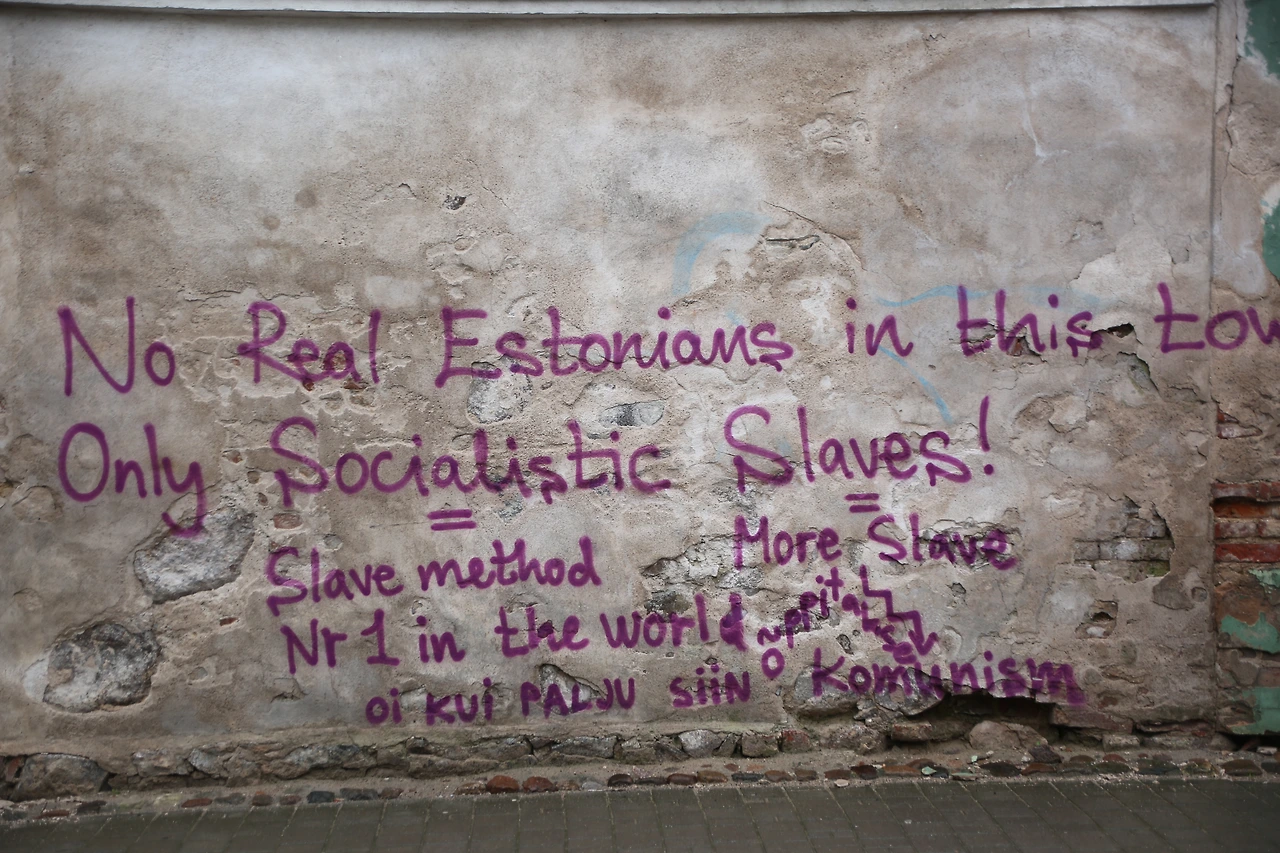 No Real Estonians in this tow
Only Socialistic Slaves!
= =
Slave method
More Slave
Nr 1 in the world
õppita
se
oi kui PALJU siiN
Komunism